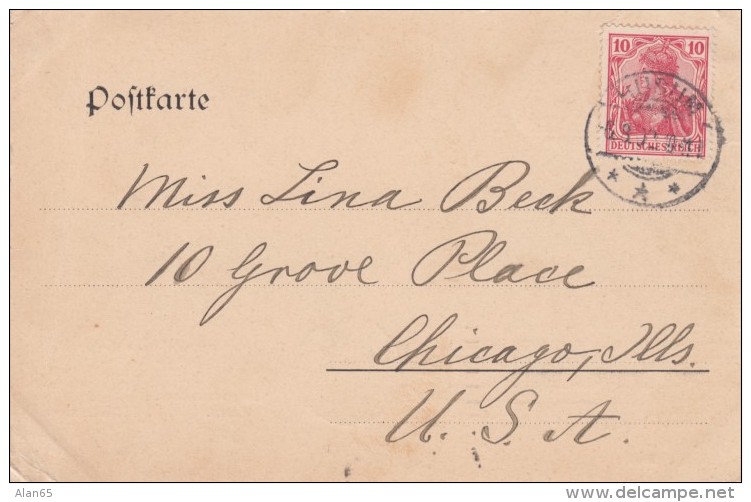 10 10
DEUTSCHES REICH
Postkarte
Miss Lina Beck
10 Grove Place
Chicago, Ills.
U. S. A.
Alan65
www.delcampe.net